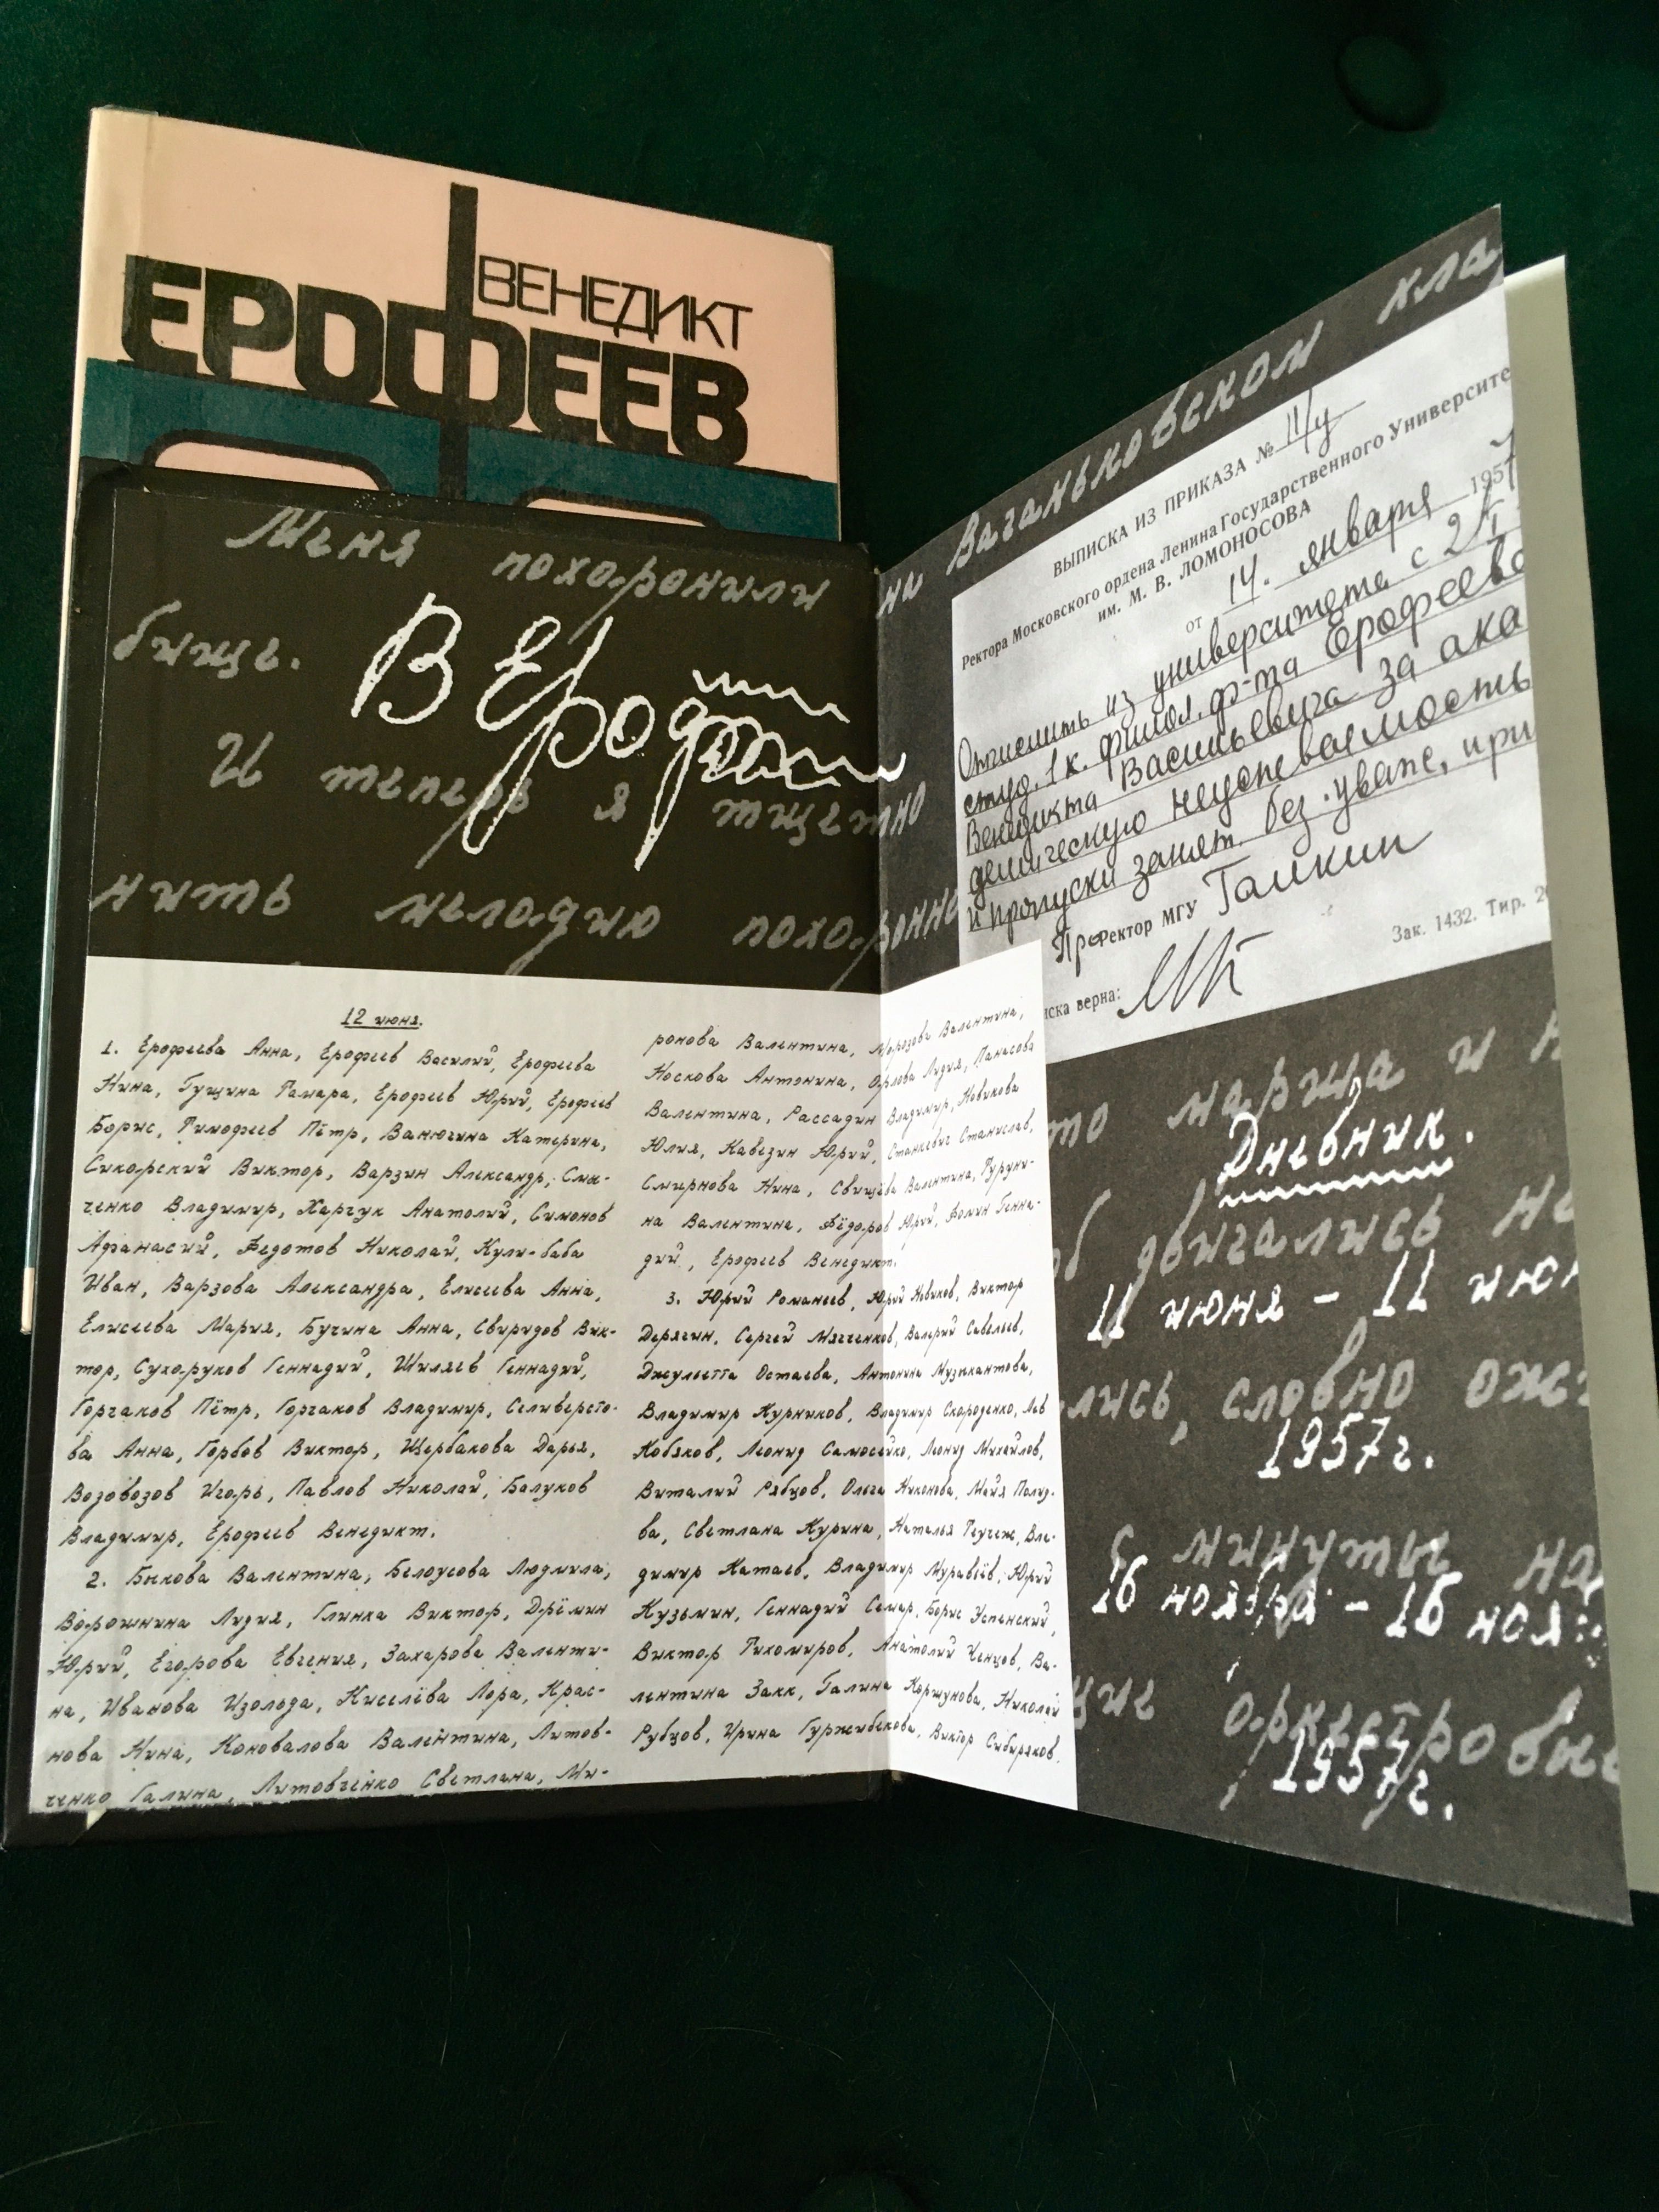 ВЕНЕДИКТ
ЕРОФЕЕВ
Меня похоронили
на Ваганьковском кла
бище.
В Ероф
И теперь я тщетно
нить мелодию похоронно
12 июня.
1. Ерофеева Анна, Ерофеев Василий, Ерофеева
Нина, Гущина Тамара, Ерофеев Юрий, Ерофеев
Борис, Тимофеев Пётр, Ванюгина Катерина,
Сикорский Виктор, Варзин Александр, Сми-
ченко Владимир, Харчук Анатолий, Симонов
Афанасий, Федотов Николай, Кули-баба
Иван, Варзова Александра, Елисеева Анна,
Елисеева Мария, Бучина Анна, Свиридов Вик-
тор, Сухоруков Геннадий, Шиляев Геннадий,
Горчаков Пётр, Горчаков Владимир, Селиверсто-
ва Анна, Горбов Виктор, Щербакова Дарья,
Возовозов Игорь, Павлов Николай, Балуков
Владимир, Ерофеев Венедикт.
2. Быкова Валентина, Белоусова Людмила,
Ворошнина Лидия, Глинка Виктор, Дрёмин
Юрий, Егорова Евгения, Захарова Валенти-
на, Иванова Изольда, Киселёва Лора, Крас-
нова Нина, Коновалова Валентина, Литов-
ченко Галина, Литовченко Светлана, Ми-
ронова Валентина, Морозова Валентина,
Носкова Антонина, Орлова Лидия, Панасова
Валентина, Рассадин Владимир, Новикова
Юлия, Кавезин Юрий, Станкевич Станислав,
Смирнова Нина, Свищёва Валентина, Гуруни-
на Валентина, Фёдоров Юрий, Фомин Генна-
дий, Ерофеев Венедикт.
3. Юрий Романеев, Юрий Новиков, Виктор
Дерягин, Сергей Мягченков, Валерий Савельев,
Джульетта Остаева, Антонина Музыкантова,
Владимир Курников, Владимир Скороденко, Лев
Кобяков, Леонид Самосейко, Леонид Михайлов,
Виталий Рябцов, Ольга Никонова, Майя Полуэ-
ва, Светлана Курина, Наталья Теучеж, Вла-
димир Катаев, Владимир Муравьёв, Юрий
Кузьмин, Геннадий Семар, Борис Успенский,
Виктор Тихомиров, Анатолий Ченцов, Ва-
лентина Закк, Галина Коршунова, Николай
Рубцов, Ирина Гуржибекова, Виктор Сибиряков.
ВЫПИСКА ИЗ ПРИКАЗА № 11/у
Ректора Московского ордена Ленина Государственного Университе
им. М. В. ЛОМОНОСОВА
от 14. января 1957
Отчислить из университета с 21/I
студ. 1 к. филол. ф-та Ерофеева
Венедикта Васильевича за ака
демическую неуспеваемость
и пропуски занят. без. уваж. при
Проректор МГУ Галкин
иска верна:
Зак. 1432. Тир. 2
то марша и
Дневник.
об двигались не
11 июня – 11 июн
лись, словно ожи
1957г.
минуты на
16 ноября – 16 ноя
щие оркестровы
1957г.